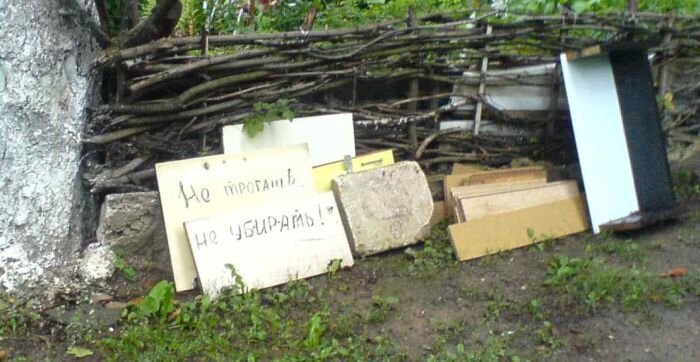 Не трогать.
не УБИРАТЬ!